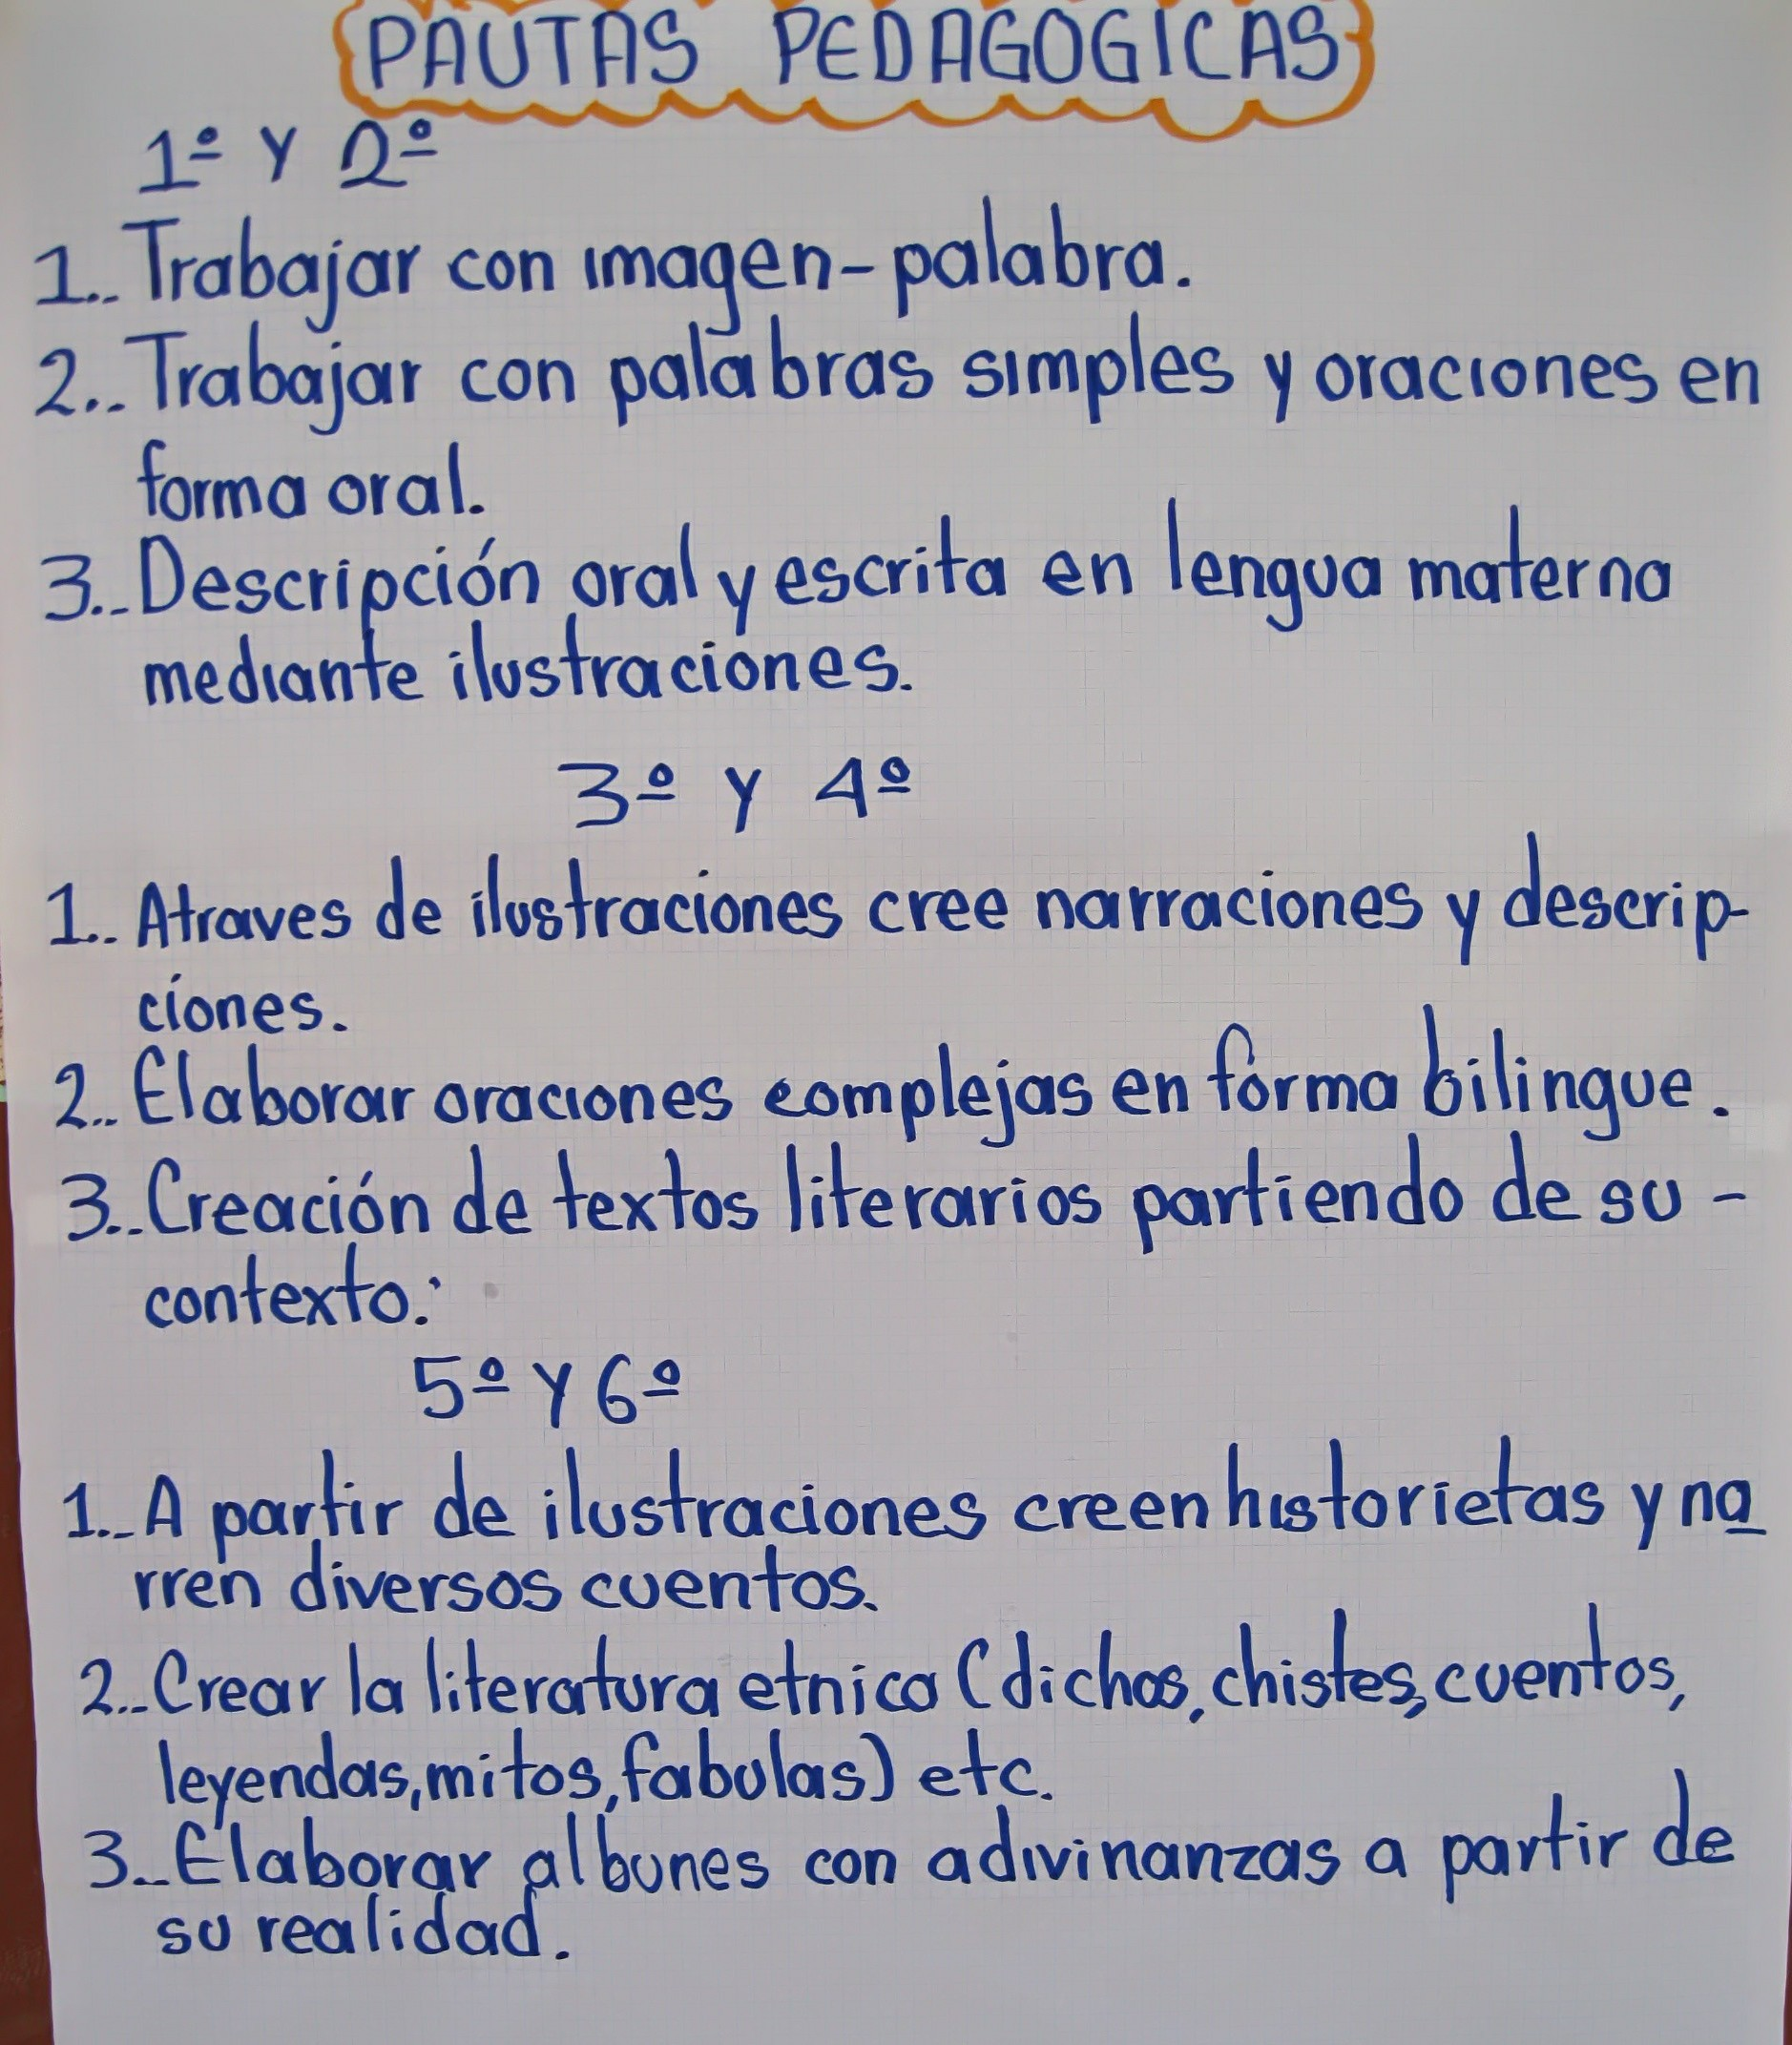 PAUTAS PEDAGOGICAS
1º Y 2º
1.. Trabajar con imagen-palabra.
2.. Trabajar con palabras simples y oraciones en
forma oral.
3.. Descripción oral y escrita en lengua materna
mediante ilustraciones.
3º Y 4º
1.. Atraves de ilustraciones cree narraciones y descrip-
ciones.
2.. Elaborar oraciones complejas en forma bilingue.
3.. Creación de textos literarios partiendo de su -
contexto.
5º Y 6º
1.. A partir de ilustraciones creen historietas y na
rren diversos cuentos.
2.. Crear la literatura etnica (dichos, chistes, cuentos,
leyendas, mitos, fabulas) etc.
3.. Elaborar albunes con adivinanzas a partir de
su realidad.